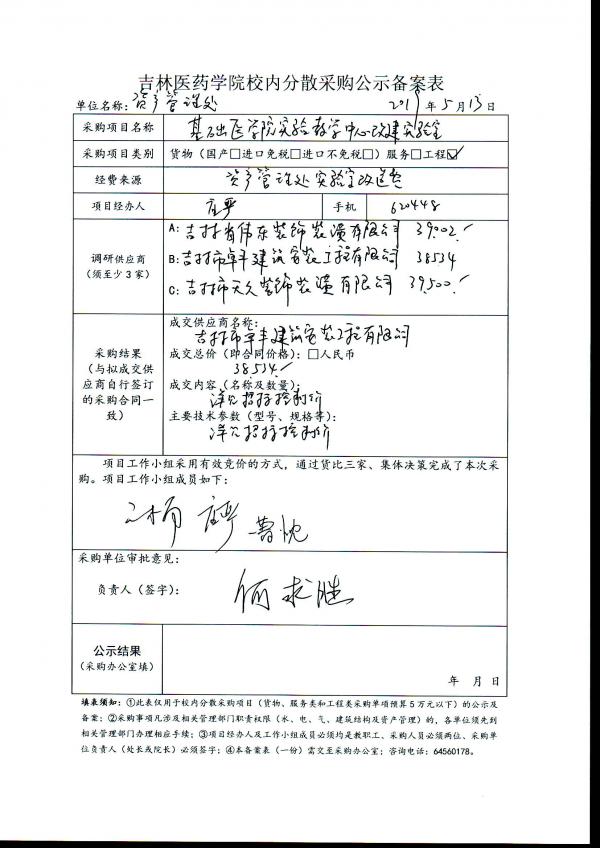 吉林医药学院校内分散采购公示备案表
单位名称：资产管理处 2019年5月13日
采购项目名称 基础医学院实验教学中心改建实验室
采购项目类别 货物（国产□进口免税□进口不免税□）服务□工程☑
经费来源 资产管理处实验室改造
项目经办人 手机 620448
调研供应商
（须至少3家）
A：吉林省伟东装饰装潢有限公司 39002.
B：吉林市卓丰建筑安装工程有限公司 38534
C：吉林市天久装饰装潢有限公司 39500.
采购结果
（与拟成交供
应商自行签订
的采购合同一
致）
成交供应商名称：
吉林市卓丰建筑安装工程有限公司
成交总价（即合同价格）：□人民币
38534.
成交内容（名称及数量）：
详见招标控制价
主要技术参数（型号、规格等）：
详见招标控制价
项目工作小组采用有效竞价的方式，通过货比三家、集体决策完成了本次采
购。项目工作小组成员如下：
采购单位审批意见：
负责人（签字）： 何求胜
公示结果
（采购办公室填）
年 月 日
填表须知：①此表仅用于校内分散采购项目（货物、服务类和工程类采购单项预算5万元以下）的公示及
备案；②采购事项凡涉及相关管理部门职责权限（水、电、气、建筑结构及资产管理）的，各单位须先到
相关管理部门办理相应手续；③项目经办人及工作小组成员必须均是教职工、采购人员必须两位、采购单
位负责人（处长或院长）必须签字；④本备案表（一份）需交至采购办公室；咨询电话：64560178。